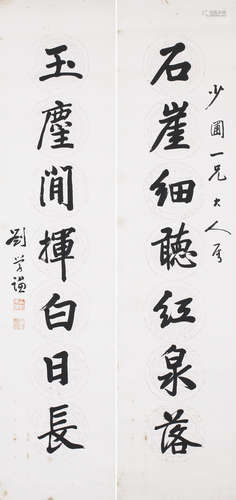 少圃一兄大人属
石崖细聽紅泉落
玉麈閒揮白日長
劉芳謙